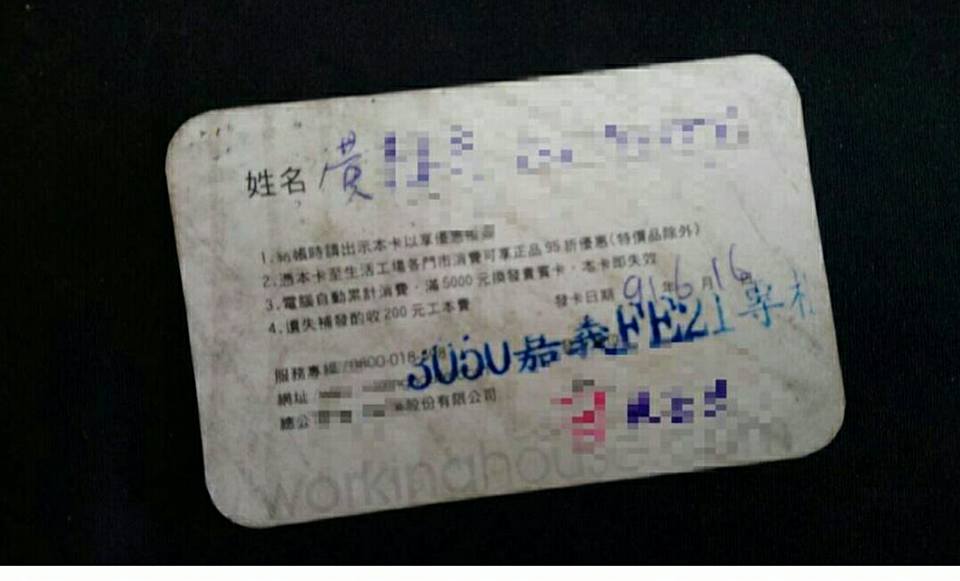 姓名 黃
1.結帳時請出示本卡以享優惠權益
2.憑本卡至生活工場各門市消費可享正品95折優惠(特價品除外)
3.電腦自動累計消費,滿5000元換發貴賓卡,本卡即失效
4.遺失補發酌收200元工本費
發卡日期 91年6月16日
服務專線/0800-018-
3050嘉義FE21專櫃
網址
總公 股份有限公司
workinghouse.com